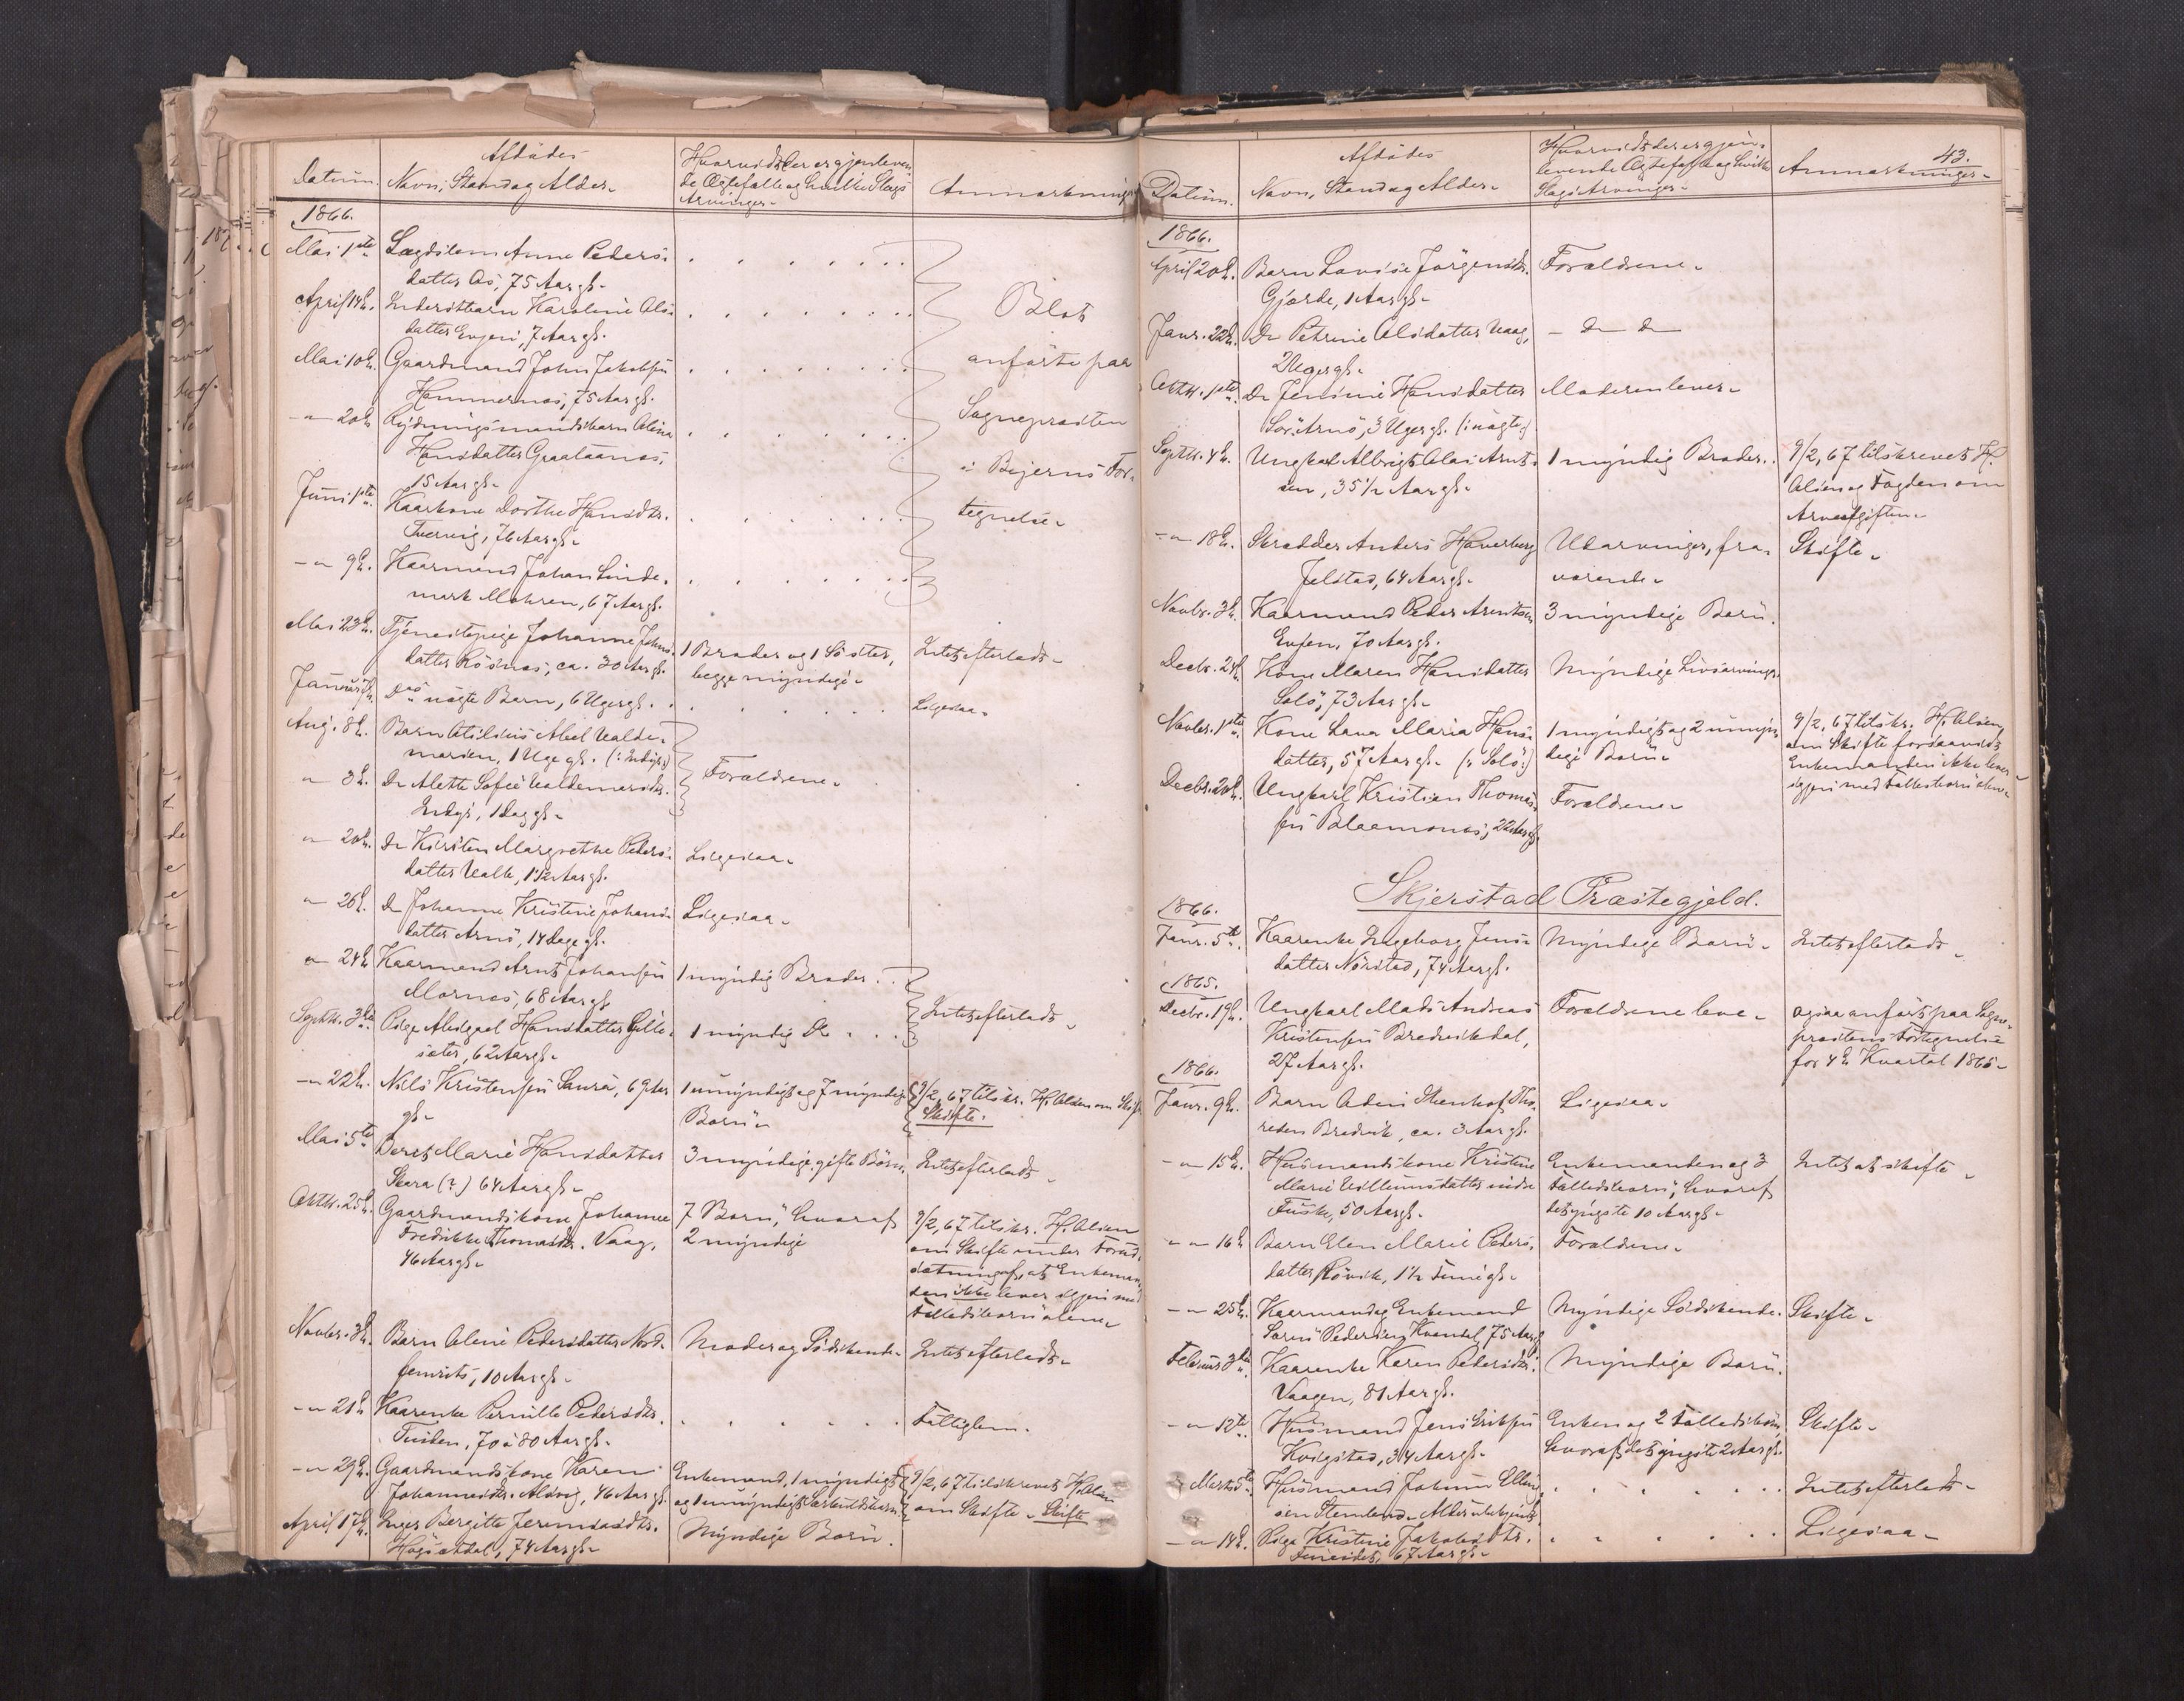 Datum.
Afdødes
Navn, Stand og Alder
Hvorvidt der er gjenleven-
de Ægtefælle og hvilke Slags
Arvinger
Anmærkninger
1866.
Mai 1ste
Lægdslem Anne Peders-
datter Aas, 75 Aar gl.
April 14de.
Inderstbarn Karoline Ols-
datter Evjen, 7 Aar gl.
Mai 10de.
Gaardmand John Jakobsen
Hammernæs, 75 Aar gl.
- " 20de
Rydningsmandsbarn Olina
Hansdatter
15 Aar gl.
Juni 1ste
Kaarkone Dorthe Hansdtr.
Tvervig, 76 Aar gl.
- " 9de.
Kaarmand Johan Linde-
mark Mohren, 67 Aar gl.
Blot
anførte paa
Sognepræsten
i Bejerns For-
tegnelse
Mai 23de.
Tjenestepige Johanne Johns-
datter Rösnæs, ca. 30 Aar gl.
1 Broder og 1 Søster,
begge myndige
Intet efterladt
Januar 7de.
Dos uægte Barn, 6 Uger gl.
Ligesaa
Aug. 8de.
Barn Abel Valde-
marsen, 1 Uge gl.
" 3de.
Do Alette Sofie Valdemarsdtr.
1 Dag gl.
Forældrene
" 20de.
Do Kirsten Margrethe Peders-
datter Valle, 1 1/2 Aar gl.
Ligesaa
" 26de.
Do Johanne Kristine Johans-
datter Arnö, 14 Dage gl.
Ligesaa
" 24de
Kaarmand Arnt Johansen
Mornæs, 68 Aar gl
1 myndig Broder
Septbr. 3die
Pige Abelgael Hansdatter Gille-
sæter, 62 Aar gl.
1 myndig Do
Intet efterladt
- " 22de.
Nils Kristensen Saura, 69 Aar
gl.
1 umyndigt og 7 myndige
Børn
9/2, 67 tilskr. H. Olsen om Skifte
Skifte.
Mai 5te
Beret Marie Hansdatter
Skara (?) 64 Aar gl.
3 myndige, gifte Børn.
Intet efterladt
Oktbr. 25de.
Gaardmandskone Johanna
Fredrikke Thomasdtr. Vaag,
46 Aar gl.
7 Børn, hvoraf
2 myndige
9/2, 67 tilskr. H. Olsen
om Skifte under Forud-
sætning af, at Enkeman-
den ikke lever igjen med
Fællesbørn alene
Novbr. 3de.
Barn Olene Pedersdatter Nord-
10 Aar gl.
Moder og Södskende
Intet efterladt
- " 21de
Kaarenke Pernille Pedersdtr.
70 à 80 Aar gl.
Fattiglem.
- " 29de.
Gaardmandskone Karen
Johannesdtr. Alsvig, 46 Aar gl.
Enkemand, 1 myndigt
og 1 umyndigt Særkuldsbarn
9/2, 67 tilskrevet H. Olsen
om Skifte. Skifte
April 17de.
Inger Bergitte Jeremiasdtr.
Høgsetdal, 74 Aar gl.
Myndige Børn.
43.
Datum.
Afdødes
Navn, Stand og Alder
Hvorvidt der er gjen-
levende Ægtefælle og hvilke
Slags Arvinger
Anmærkninger
1866.
April 20de.
Barn Lovise Jørgensdtr.
Gjærde, 1 Aar gl.
Forældrene
Janr. 22de.
Do Petrine Olsdatter Vaag,
2 Uger gl.
- Do Do
Oktbr. 1ste.
Do Jensine Hansdatter
Sör-Arnö, 3 Uger gl. (: uægte :)
Moderen lever
Septbr. 4de.
Ungkarl Albrigt Olai Arnt-
sen, 35 1/2 Aar gl.
1 myndig Broder.
9/2, 67 tilskrevet H.
Olsen og Fogden om
Arveafgiften
- " 18de.
Skrædder Anders Haverberg
Jelstad, 64 Aar gl.
Udarvinger, fra-
værende
Skifte
Novbr. 3de.
Kaarmand Peder Arentsen
Evjen, 70 Aar gl.
3 myndige Børn.
Decbr. 24de.
Kone Maren Hansdatter
Solö, 73 Aar gl.
Myndige Livsarvinger.
Novbr. 1ste
Kone Lava Maria Hans-
datter, 57 Aar gl. (: Solö :)
1 myndigt og 2 umyn-
dige Børn
9/2, 67 tilskr. H. Olsen
om Skifte forsaavidt
Enkemanden ikke lever
igjen med Fællesbørn alene
Decbr. 20de.
Ungkarl Kristian Thomas-
sen Blaamonæs, 22 Aar gl.
Forældrene
Skjerstad Præstegjeld.
1866.
Janr. 5te.
Kaarenke Ingeborg Jens-
datter Nörstad, 74 Aar gl.
Myndige Børn
Intet efterladt
1865.
Decbr. 19de.
Ungkarl Mads Andreas
Kristensen Bredvikdal,
27 Aar gl.
Forældrene leve
ogsaa anført paa Sogne-
præstens Fortegnelse
for 4de Kvartal 1865
1866.
Janr. 9de.
Barn Odin Steenhof Tho-
resen Bredvik, ca. 3 Aar gl.
Ligesaa
- " 15de.
Husmandskone Kristine
Marie Villumsdatter
Fuske, 50 Aar gl.
Enkemanden og 3
Fællesbørn, hvoraf
det yngste 10 Aar gl.
Intet at skifte
- " 16de
Barn Elen Marie Peders-
datter Rövik, 1 1/2 Time gl.
Forældrene
- " 25de.
Kaarmand og Enkemand
Søren Pedersen Kvandal, 75 Aar gl
Myndige Södskende.
Skifte
Februar 3die
Kaarenke Karen Pedersdtr.
Vaagen, 81 Aar gl.
Myndige Børn.
- " 12te
Husmand Jens Eriksen
Kvigstad, 34 Aar gl.
Enken og 2 Fællesbørn,
hvoraf det yngste 2 Aar gl.
Skifte
Marts 5te
Husmand Johan Elling-
sen Stemland. Alder ubekjendt
Intet efterladt
- " 14de.
Pige Kristine Jakobsdtr.
Fineidet, 67 Aar gl.
Ligesaa